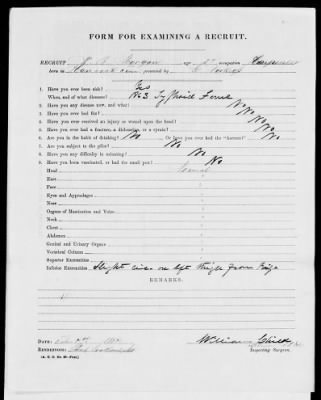 FORM FOR EXAMINING A RECRUIT.
RECRUIT J. B. Morgan age 27 occupation Carpenter
born in presented by
1. Have you ever been sick? Yes
When, and of what disease? Typhoid Fever
2. Have you any disease now, and what? No
3. Have you ever had fits? No
4. Have you ever received an injury or wound upon the head? No
5. Have you ever had a fracture, a dislocation, or a sprain? No
6. Are you in the habit of drinking? No Or have you ever had the "horrors"? No
7. Are you subject to the piles? No
8. Have you any difficulty in urinating? No
9. Have you been vaccinated, or had the small pox? No
Head
Face
Eyes and Appendages
Nose
Organs of Mastication and Voice
Neck
Chest
Abdomen
Genital and Urinary Organs
Vertebral Column
Superior Extremities
Inferior Extremities Slight on left thigh from
REMARKS.
DATE:
William Child
RENDEZVOUS:
Inspecting Surgeon.